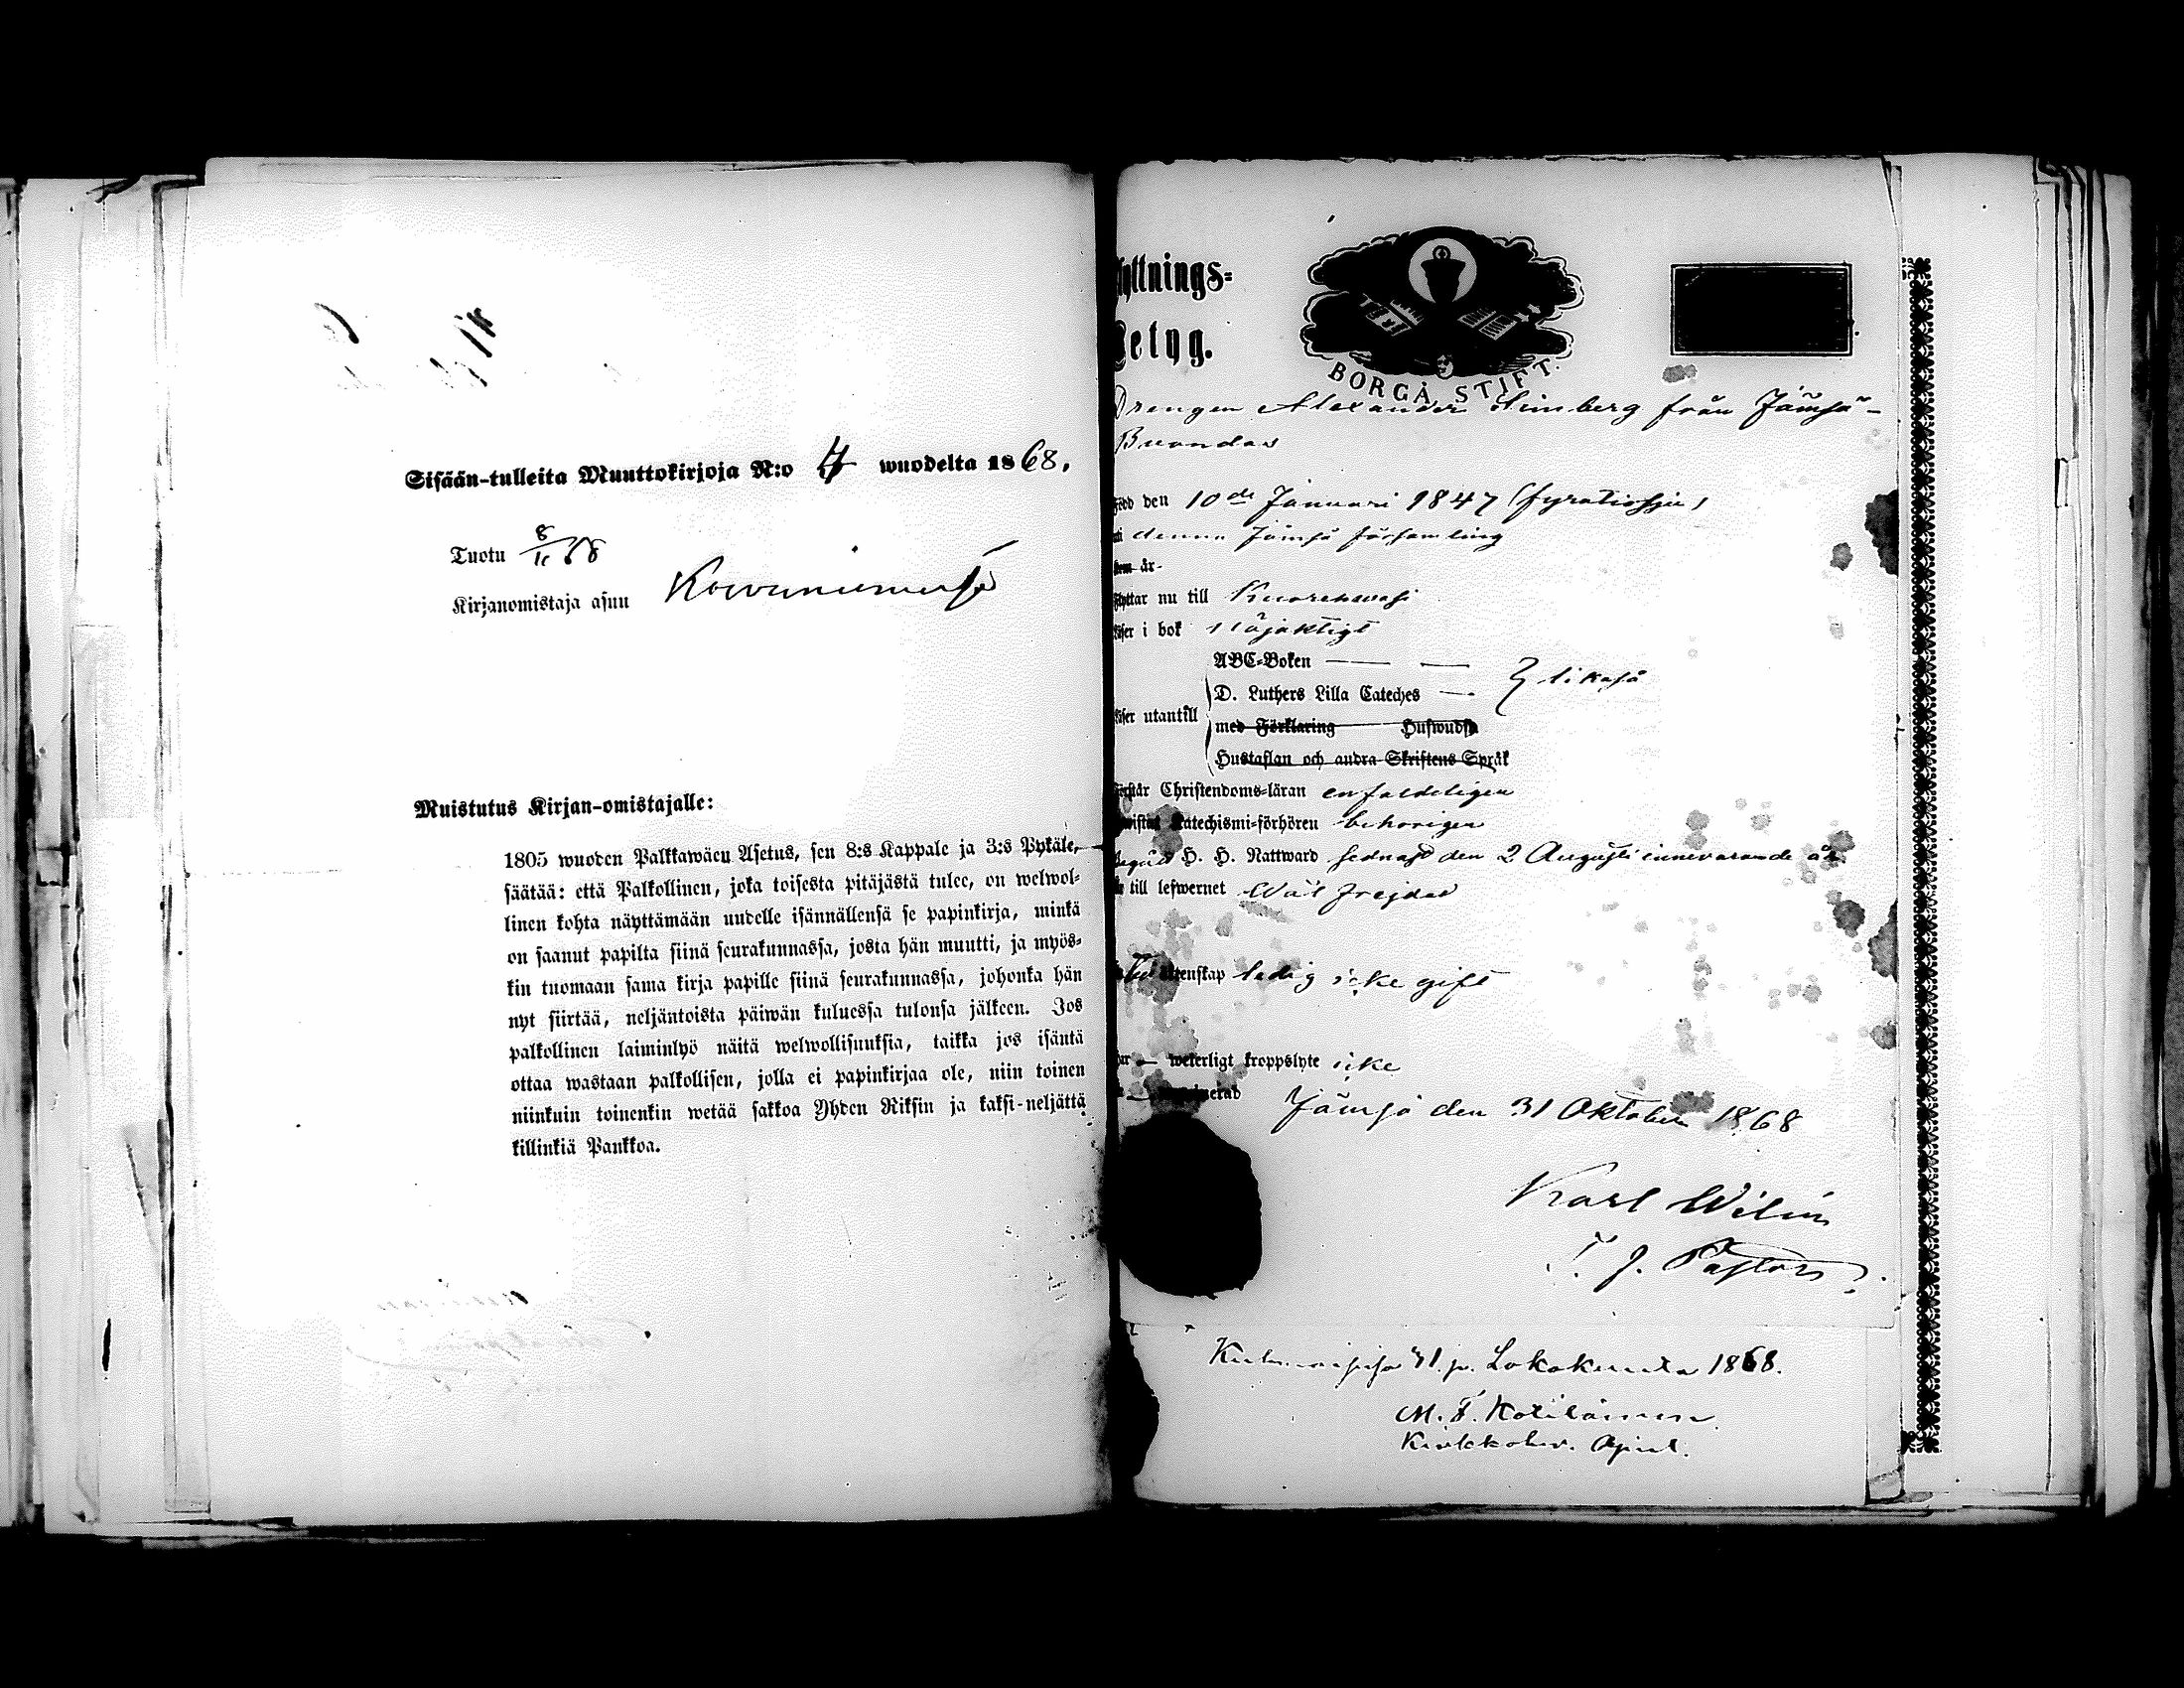 Sisään-tulleita Muuttokirjoja N:o 4 wuodelta 1868.
Tuotu 8/11 68
Kirjanomistaja asuu
Muistutus Kirjan-omistajalle:
1805 wuoden Palkkawäen Asetus, sen 8:s Kappale ja 3:s Pykäle,
säätää: että Palkollinen, joka toisesta pitäjästä tulee, on welwol-
linen kohta näyttämään uudelle isännällensä se papinkirja, minkä
on saanut papilta siinä seurakunnassa, josta hän muutti, ja myös-
kin tuomaan sama kirja papille siinä seurakunnassa, johonka hän
nyt siirtää, neljäntoista päiwän kuluessa tulonsa jälkeen. Jos
palkollinen laiminlyö näitä welwollisuuksia, taikka jos isäntä
ottaa wastaan palkollisen, jolla ei papinkirjaa ole, niin toinen
niinkuin toinenkin wetää sakkoa Yhden Riksin ja kaksi-neljättä
killinkiä Pankkoa.
yttnings-
Betyg.
BORGÅ STIFT.
Drengen Alexander Simberg från Jämsä
Född den 10de Januari 1847 (fyratiosju)
i denna Jämsä församling
som är
flyttar nu till Kuorehwesi
läser i bok nöjaktigt
ABC-Boken
D. Luthers Lilla Cateches likaså
läser utantill
med Förklaring Huswudst
Hustaflan och andra Skriftens Språk
Förstår Christendoms-läran enfaldeligen
Catechismi-förhören behörigen
Begått H. H. Nattward sednast den 2 Augusti innevarande år
till lefwernet Wäl frejdad
ägtenskap ledig icke gift
har weterligt kroppslyte icke
Jämsä den 31 Oktober 1868
Karl Wilén
T. J. Pastor.
31 p. Lokakuuta 1868.